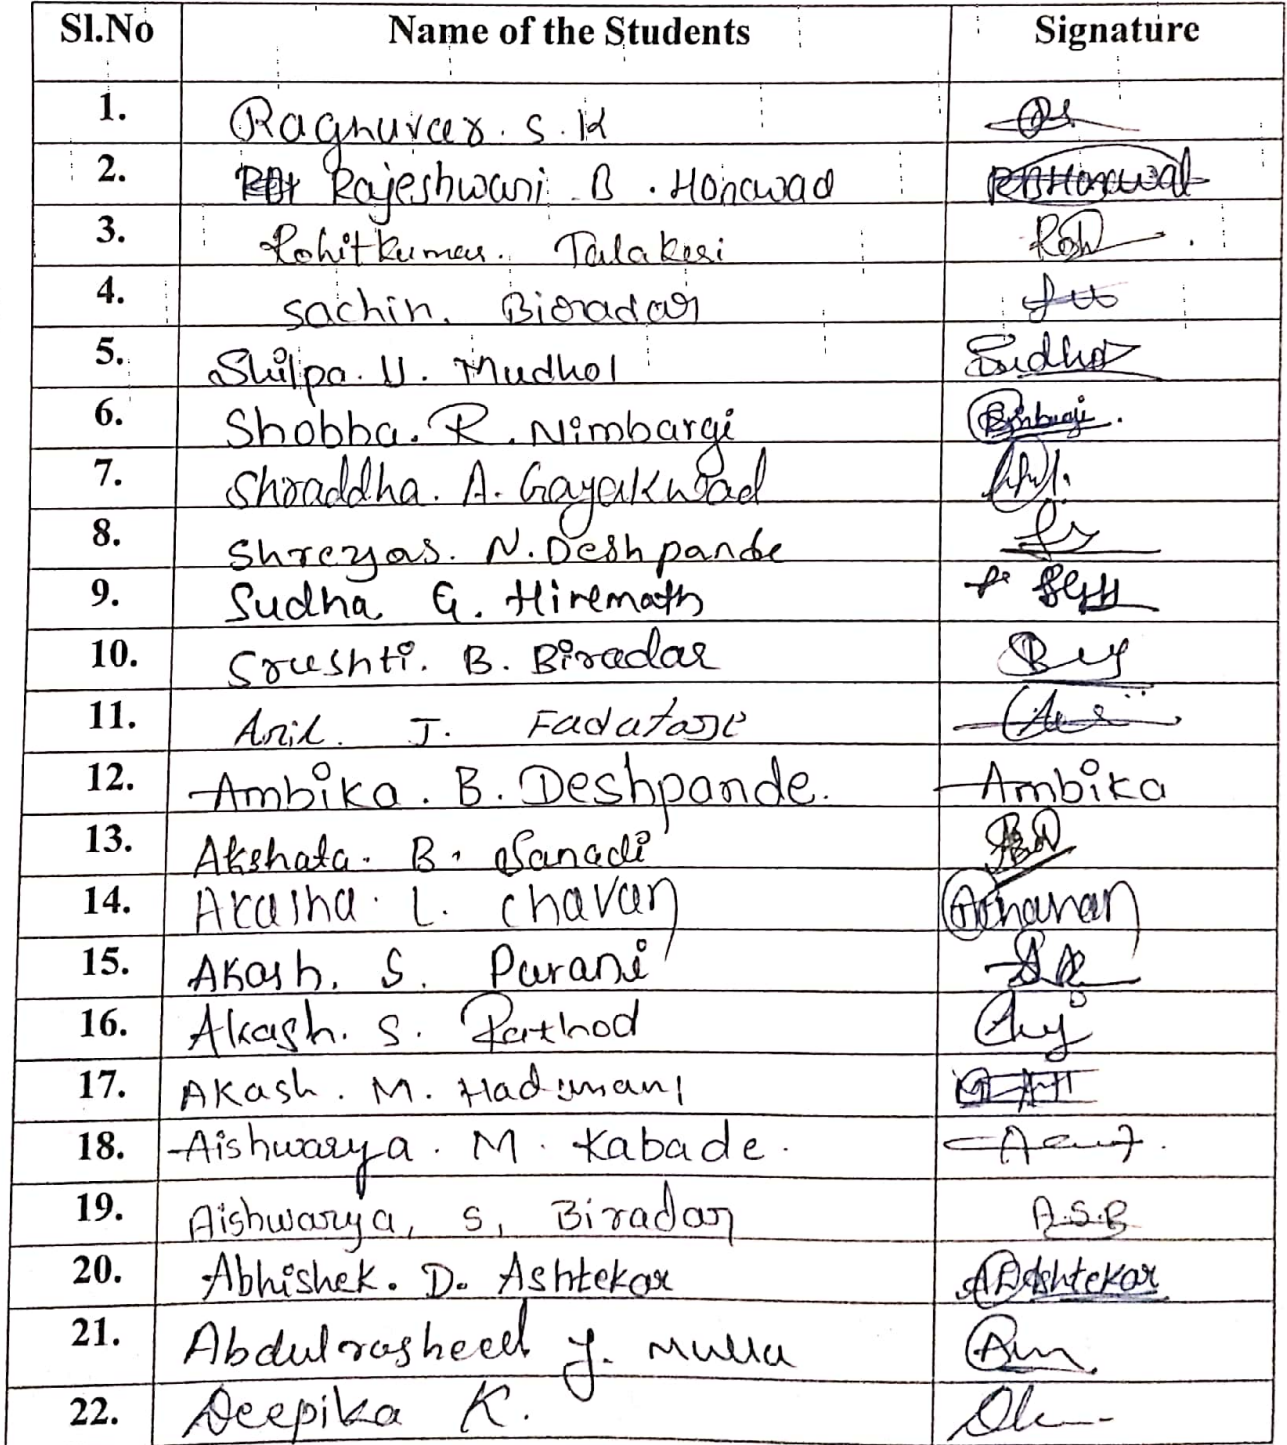 Sl.No Name of the Students Signature
1. Raghuveer. S. K
2. Rajeshwari B. Honawad RBHonawad
3. Rohitkumar. Talakeri Roh
4. Sachin. Biradar
5. Shilpa. U. Mudhol
6. Shobba. R. Nimbargi
7. Shraddha. A. Gayakwad
8. Shreyas. N. Deshpande
9. Sudha G. Hiremath
10. Srushti. B. Biradar
11. Anil. J. Fadatare
12. Ambika. B. Deshpande. Ambika
13. Akshata. B. Sanadi
14. Akasha. L. Chavan
15. Akash. S. Purani
16. Akash. S. Rathod
17. Akash. M. Hadimani
18. Aishwarya. M. Kabade.
19. Aishwarya, S, Biradar A.S.B
20. Abhishek. D. Ashtekar ADAshtekar
21. Abdulrasheed Y. Mulla
22. Deepika K.